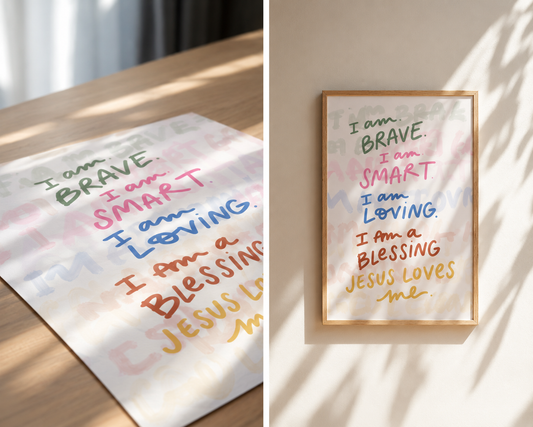 I am
BRAVE.
I am
SMART.
I am
LOVING.
I am a
BLESSING
JESUS LO
me
I am
BRAVE.
I am
SMART.
I am
LOVING.
I am a
BLESSING
JESUS LOVES
me.